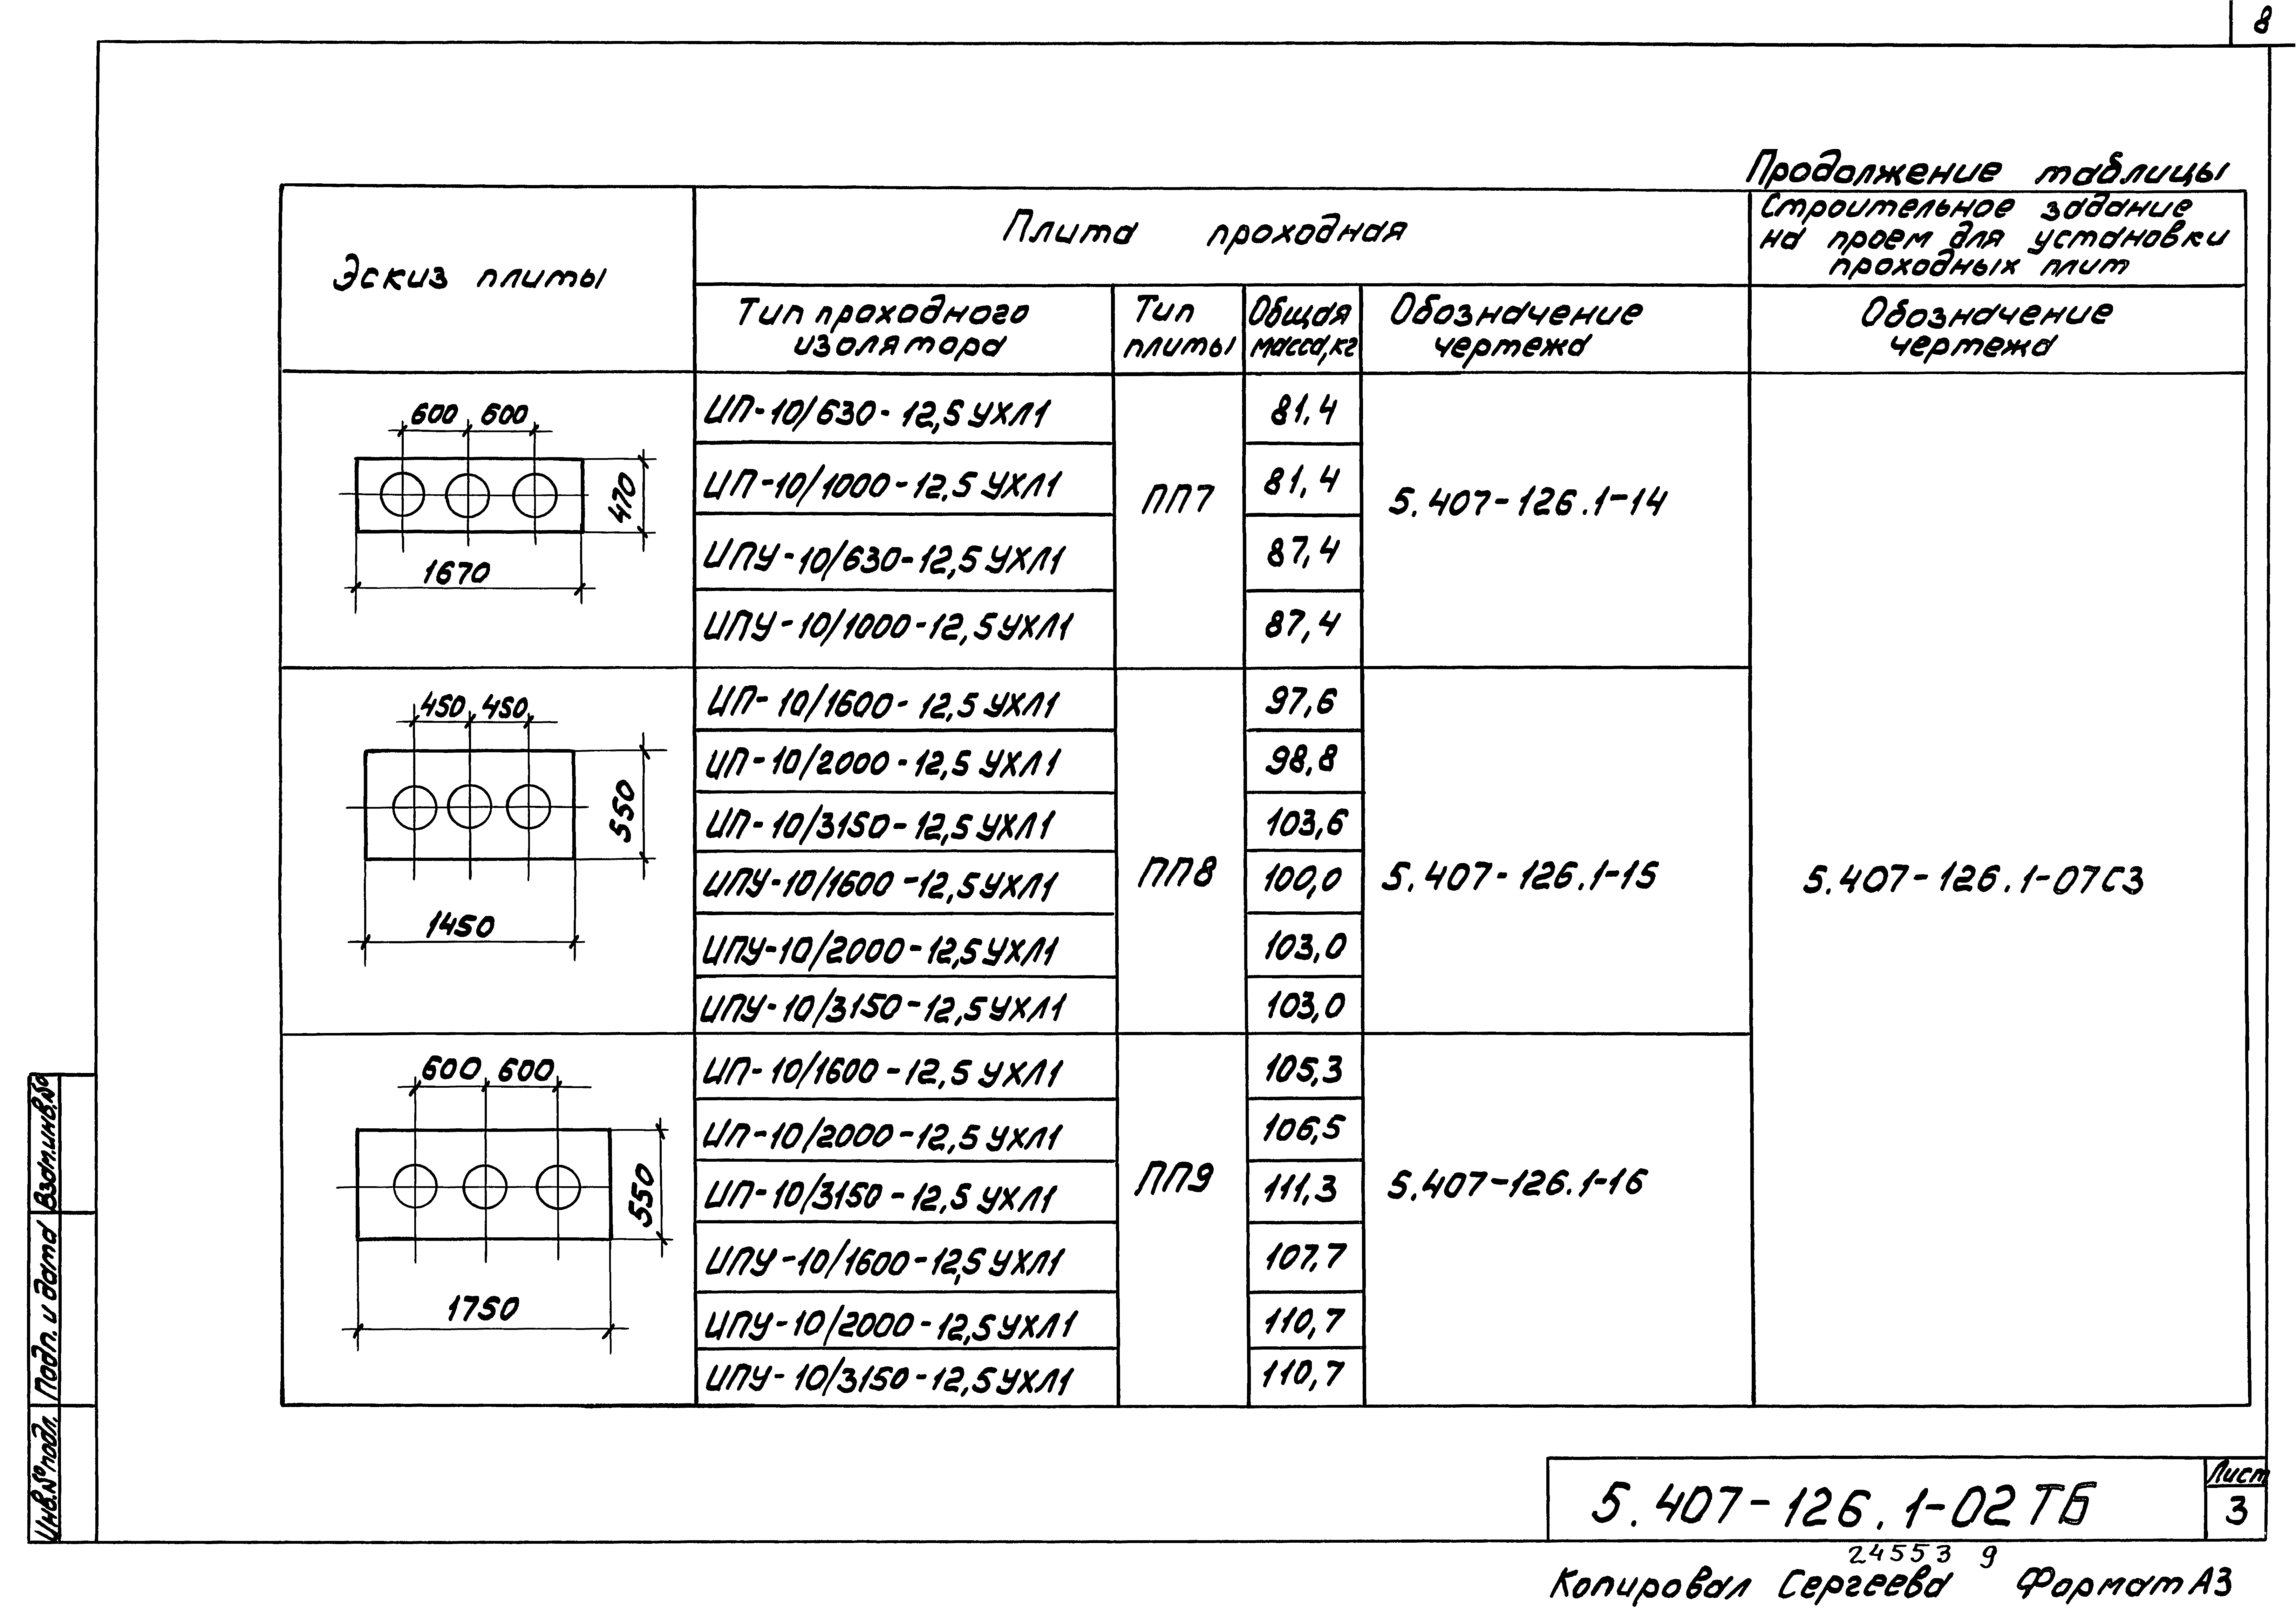 8
Продолжение таблицы
Эскиз плиты
Плита проходная
Строительное задание
на проем для установки
проходных плит
Тип проходного
изолятора
Тип
плиты
Общая
масса,кг
Обозначение
чертежа
Обозначение
чертежа
600 600
470
1670
ИП-10/630-12,5 УХЛ1 81.4
ИП-10/1000-12,5 УХЛ1 81,4
ИПУ-10/630-12,5 УХЛ1 87,4
ИПУ-10/1000-12,5 УХЛ1 87,4
ПП7
5.407-126.1-14
450 450
550
1450
ИП-10/1600-12,5 УХЛ1 97,6
ИП-10/2000-12,5 УХЛ1 98,8
ИП-10/3150-12,5 УХЛ1 103,6
ИПУ-10/1600-12,5 УХЛ1 100,0
ИПУ-10/2000-12,5 УХЛ1 103,0
ИПУ-10/3150-12,5 УХЛ1 103,0
ПП8
5.407-126.1-15
5.407-126.1-07СЗ
600 600
550
1750
ИП-10/1600-12,5 УХЛ1 105,3
ИП-10/2000-12,5 УХЛ1 106,5
ИП-10/3150-12,5 УХЛ1 111,3
ИПУ-10/1600-12,5 УХЛ1 107,7
ИПУ-10/2000-12,5 УХЛ1 110,7
ИПУ-10/3150-12,5 УХЛ1 110,7
ПП9
5.407-126.1-16
Взам.инв.№
Подп. и дата
Инв.№подл.
5.407-126.1-02ТБ
Лист
3
24553 9
Копировал Сергеева Формат А3